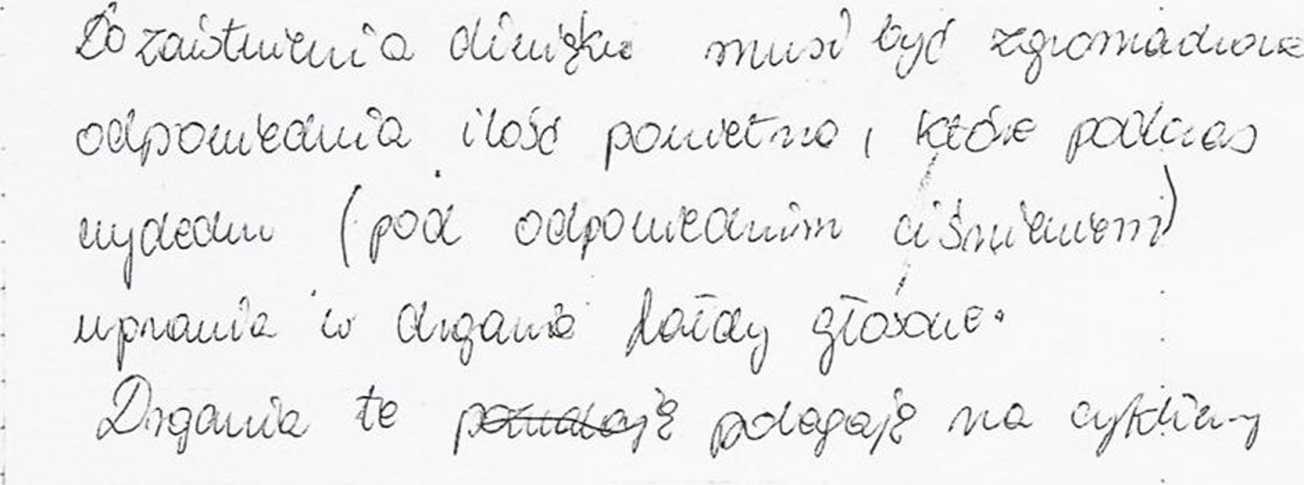 Do zaistnienia dźwięku musi być zgromadzona
odpowiednia ilość powietrza, które podczas
wydechu (pod odpowiednim ciśnieniem)
wprawia w drgania fałdy głosowe.
Drgania te polegają na cykliczny